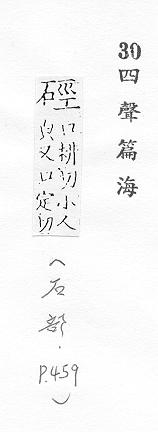 30 四聲篇海
硜
口耕切小人
皃又口定切
(石部.P.459)